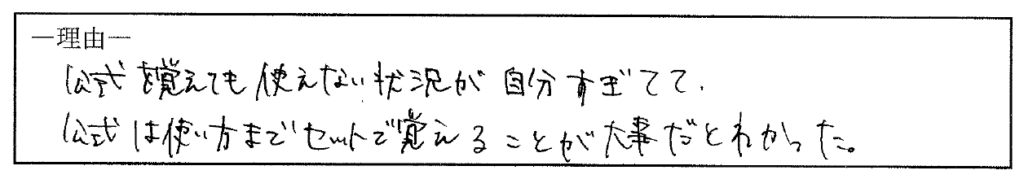 ―理由―
公式を覚えても使えない状況が自分すぎてて、
公式は使い方までセットで覚えることが大事だとわかった。